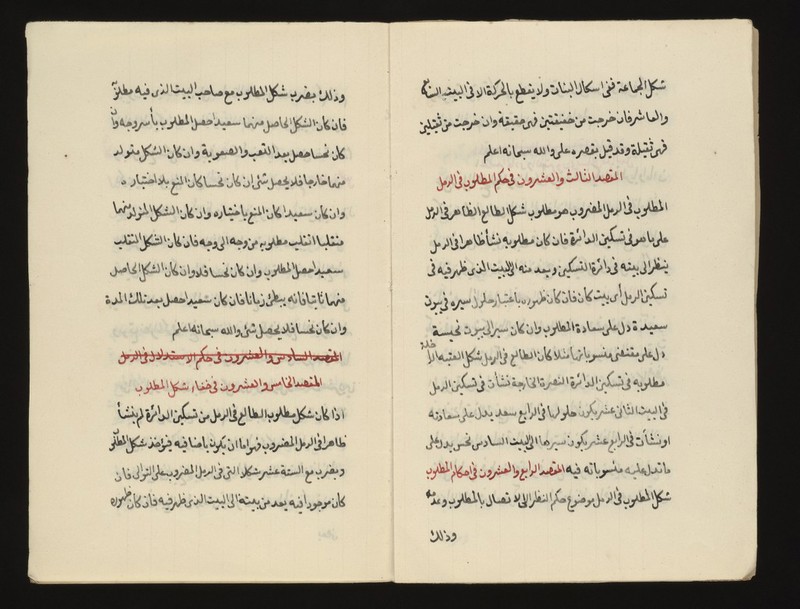 شكل الجماعة ففى اسكال البنات ولا ينقطع بالحركة الا فى البيت السته
والعاشر فان خرجت من خفيفتين فهى حقيقة وان خرجت من ثقيلين
فهى ثقيلة وقد قيل بقصره على والله سبحانه اعلم
المقصد الثالث والعشرون فى حكم المطلوب فى الرمل
المطلوب فى الرمل المضروب هو مطلوب شكل الطالع الظاهر فى الرمل
على ما هو فى تسكين الدائرة فان كان مطلوبه نشأ ظاهرا فى الرمل
ينظر الى بيته فى دائرة التسكين وبعد منه الى البيت الذى ظهر فيه فى
تسكين الرمل أى بيت كان فان كان ظهوره باعتبار حلول سيره فى بيوت
سعيدة دل على سعادة المطلوب وان كان سير الى بيوت نحيسة
دل على مقتضى منسوباتها مثلا كان الطالع فى الرمل شكل العتبه
مطلوبه فى تسكين الدائرة النصرة الخارجة نشأت فى تسكين الرمل
فى البيت الثانى عشر يكون حلولها فى الرابع سعد يدل على سعادته
او نشأت فى الرابع عشر يكون سيرها الى البيت السادس نحس يدل على
ما تدل عليه منسوباته فيه المقصد الرابع والعشرون فى احكام المطلوب
شكل المطلوب فى الرمل موضوع حكم النظر الى الاتصال بالمطلوب وعدمه
وذلك
وذلك بضرب شكل المطلوب مع صاحب البيت الذى فيه مطلوب
فان كان الشكل الحاصل منهما سعيدا حصل المطلوب بأسر وجه وان
كان نحسا حصل بعد التعب والصعوبة وان كان الشكل متولد
منهما خارجا فلا يحصل شئ ان كان نحسا كان المنع بلا اختياره
وان كان سعيدا كان المنع باختياره وان كان الشكل المتولد منهما
منقلبا انقلب مطلوبه من وجه الى وجه فان كان الشكل المنقلب
سعيدا حصل المطلوب وان كان نحسا فلا وان كان الشكل الحاصل
منهما ثابتا فانه يبطئ زمانا فان كان سعيدا حصل بعد تلك المدة
وان كان نحسا فلا يحصل شئ والله سبحانه اعلم
المقصد السادس والعشرون فى حكم الاستدلال فى الرمل
المقصد الخامس والعشرون فى خفاء شكل المطلوب
اذا كان شكل مطلوب الطالع فى الرمل من تسكين الدائرة لم ينشأ
ظاهرا فى الرمل المضروب فهو اما ان يكون باطنا فيه فيؤخذ شكل المطلوب
ويضرب مع الستة عشر شكلا التى فى الرمل المضروب على التوالى فان
كان موجودا فيه يعد من بيته الى البيت الذى ظهر فيه فان كان ظهوره